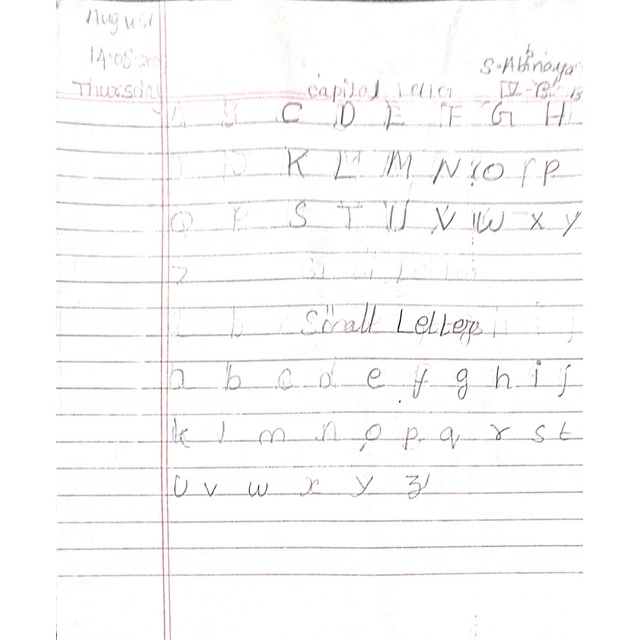 August
14.05.20
Thursday
S. Abinaya
IV-B
Capital Letter
A B C D E F G H
I J K L M N O P
Q R S T U V W X Y
Z
Small Letters
a b c d e f g h i j
k l m n o p q r s t
u v w x y z